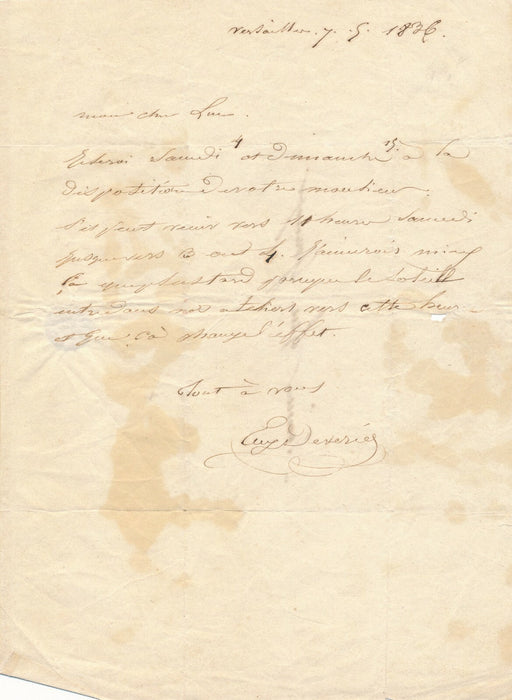 Versailles. 7. 5. 1836.
mon cher Luc.
Je serai Samedi 4 et dimanche 5. à la
disposition de votre monsieur.
S'il peut venir vers 11 heure Samedi
jusque vers 3 ou 4. J'aimerois mieux
ça que plus tard parceque le Soleil
entre dans nos ateliers vers cette heure
et que ça change l'effet.
Tout à vous
Eug. Deveria